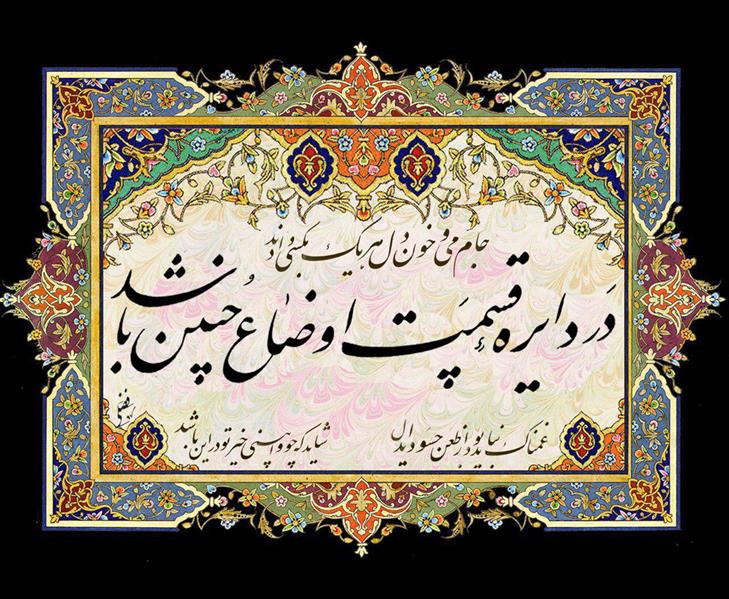 جام می و خون دل هر یک بکسی دادند
در دایره قسمت اوضاع چنین باشد
غمناک نباید بود از طعن حسود ای دل
شاید که چو وابینی خیر تو در این باشد